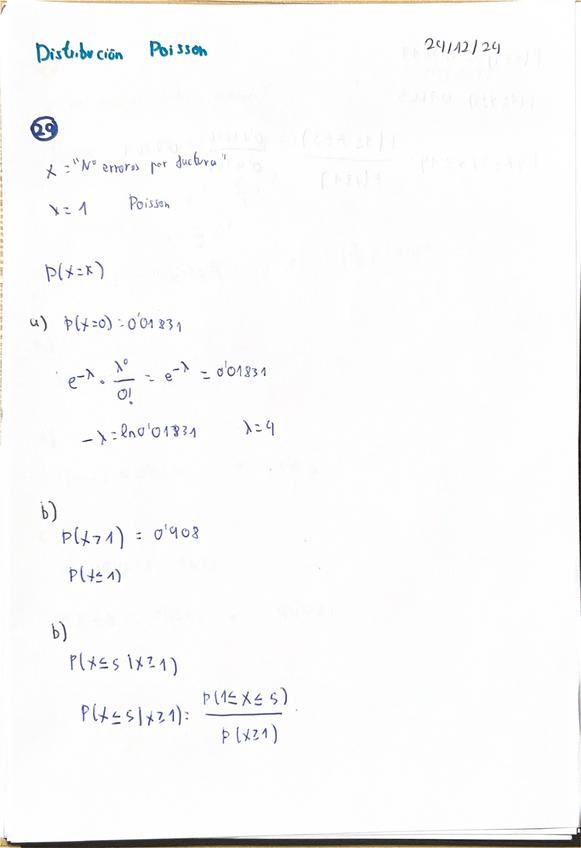 Distribución Poisson
24/12/24
29
X = "Nº errores por factura"
λ = 1 Poisson
P(X=K)
a) P(X=0) = 0'01831
e^-λ · λ⁰/0! = e^-λ = 0'01831
-λ = ln 0'01831 λ=4
b)
P(X>1) = 0'908
P(X≤1)
b)
P(X≤5|X≥1)
P(X≤5|X≥1) = P(1≤X≤5)/P(X≥1)